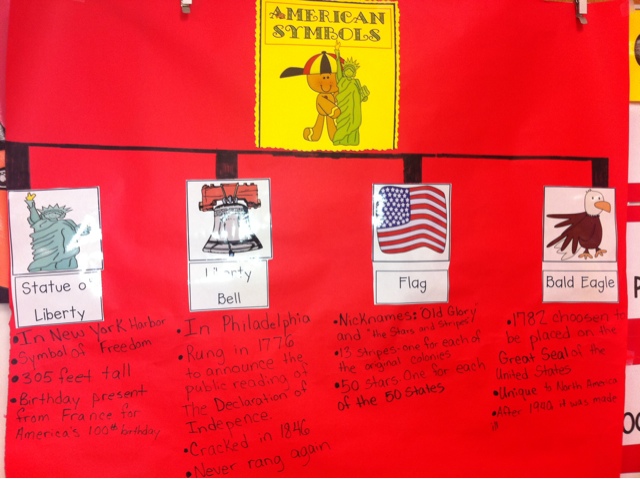 AMERICAN
SYMBOLS
Statue o
Liberty
•In New York Harbor
•Symbol of Freedom
•305 feet tall
•Birthday present
from France for
America's 100th birthday
Liberty
Bell
•In Philadelphia
•Rung in 1776
to announce the
public reading of
The Declaration of
Indepence.
•Cracked in 1846
•Never rang again
Flag
•Nicknames: "Old Glory"
and "The Stars and Stripes"
•13 stripes-one for each of
the original colonies
•50 stars-One for each
of the 50 States
Bald Eagle
•1782 choosen to
be placed on the
Great Seal of the
United States
•Unique to North America
•After 1940 it was made